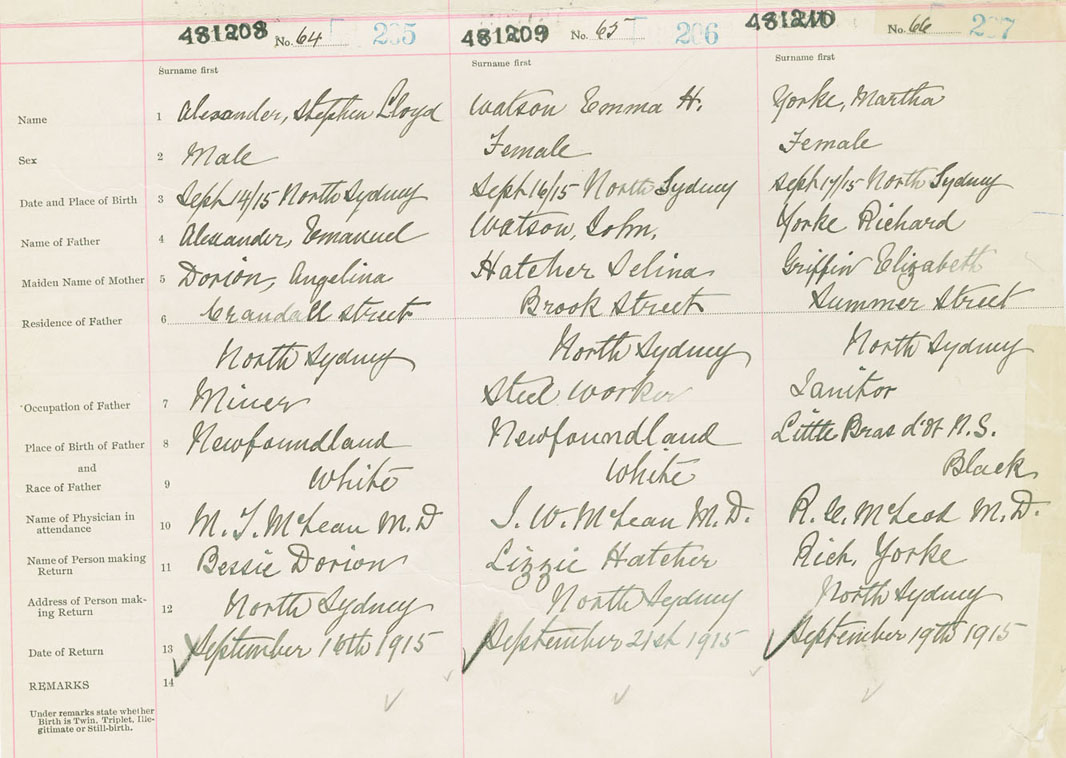 481208 No. 64 205 481209 No. 65 206 481210 No. 66 207
Surname first Surname first Surname first
Name 1 Alexander, Stephen Lloyd Watson Emma H. Yorke, Martha
Sex 2 Male Female Female
Date and Place of Birth 3 Sept 14/15 North Sydney Sept 16/15 North Sydney Sept 17/15 North Sydney
Name of Father 4 Alexander, Emanuel Watson, John, Yorke Richard
Maiden Name of Mother 5 Dorion, Angelina Hatcher Selina Griffin Elizabeth
Residence of Father 6 Crandall Street Brook Street Summer Street
North Sydney North Sydney North Sydney
Occupation of Father 7 Miner Steel Worker Janitor
Place of Birth of Father 8 Newfoundland Newfoundland Little Bras d'Or N.S.
and
Race of Father 9 White White Black
Name of Physician in
attendance 10 M. T. McLean M.D J. W. McLean M.D. R. C. McLeod M.D.
Name of Person making
Return 11 Bessie Dorion Lizzie Hatcher Rich, Yorke
Address of Person mak-
ing Return 12 North Sydney North Sydney North Sydney
Date of Return 13 September 16th 1915 September 21st 1915 September 19th 1915
REMARKS 14
Under remarks state whether
Birth is Twin, Triplet, Ille-
gitimate or Still-birth.